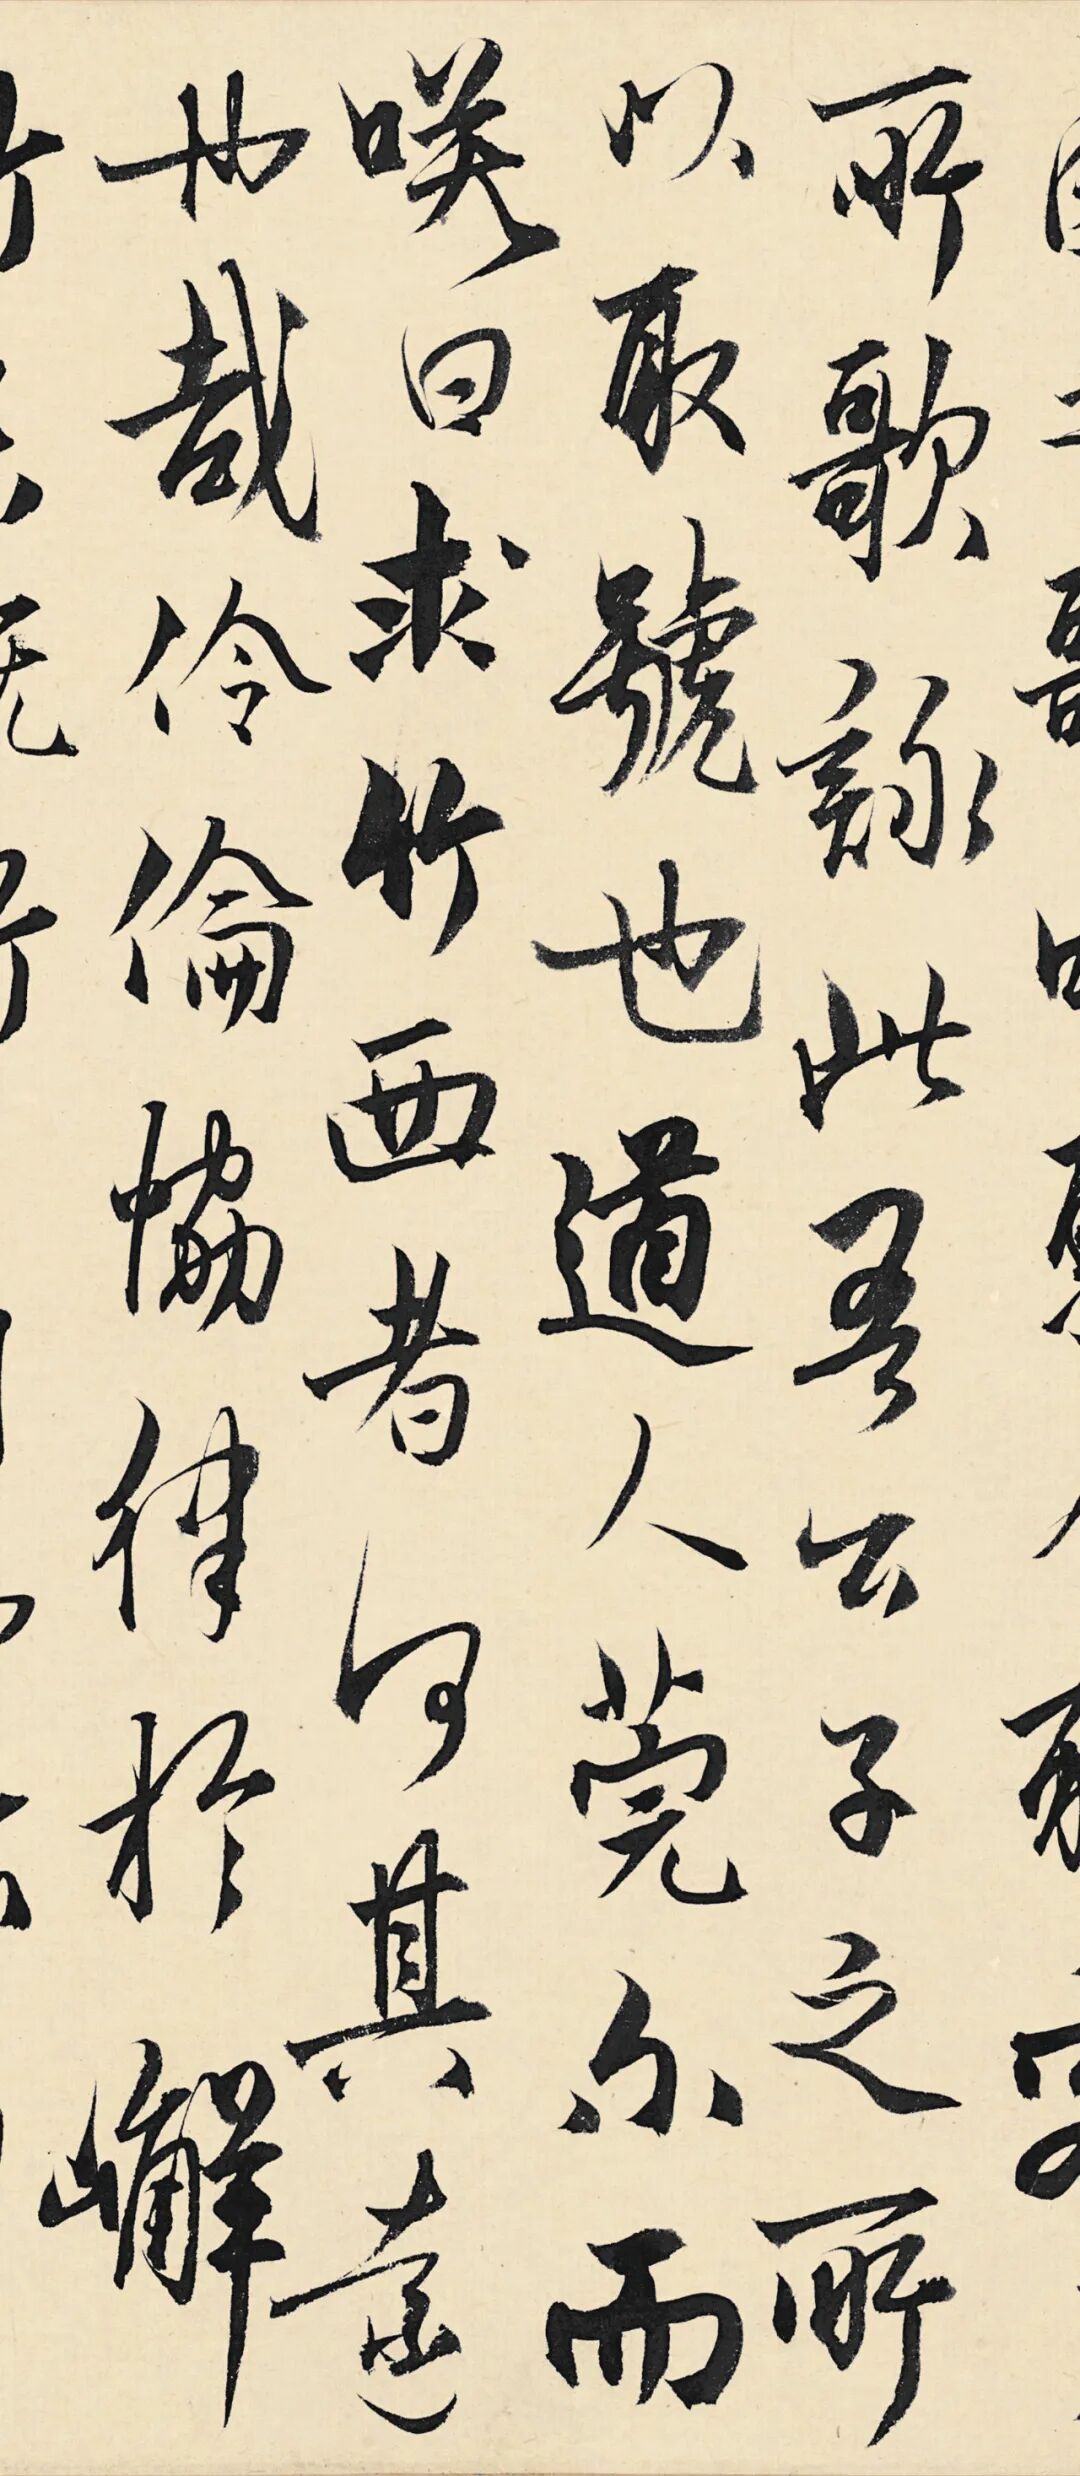 所歌詠此吾公子之所
以取號也道人莞尔而
咲曰求竹西者何其遠
也哉伶倫恊律於嶰